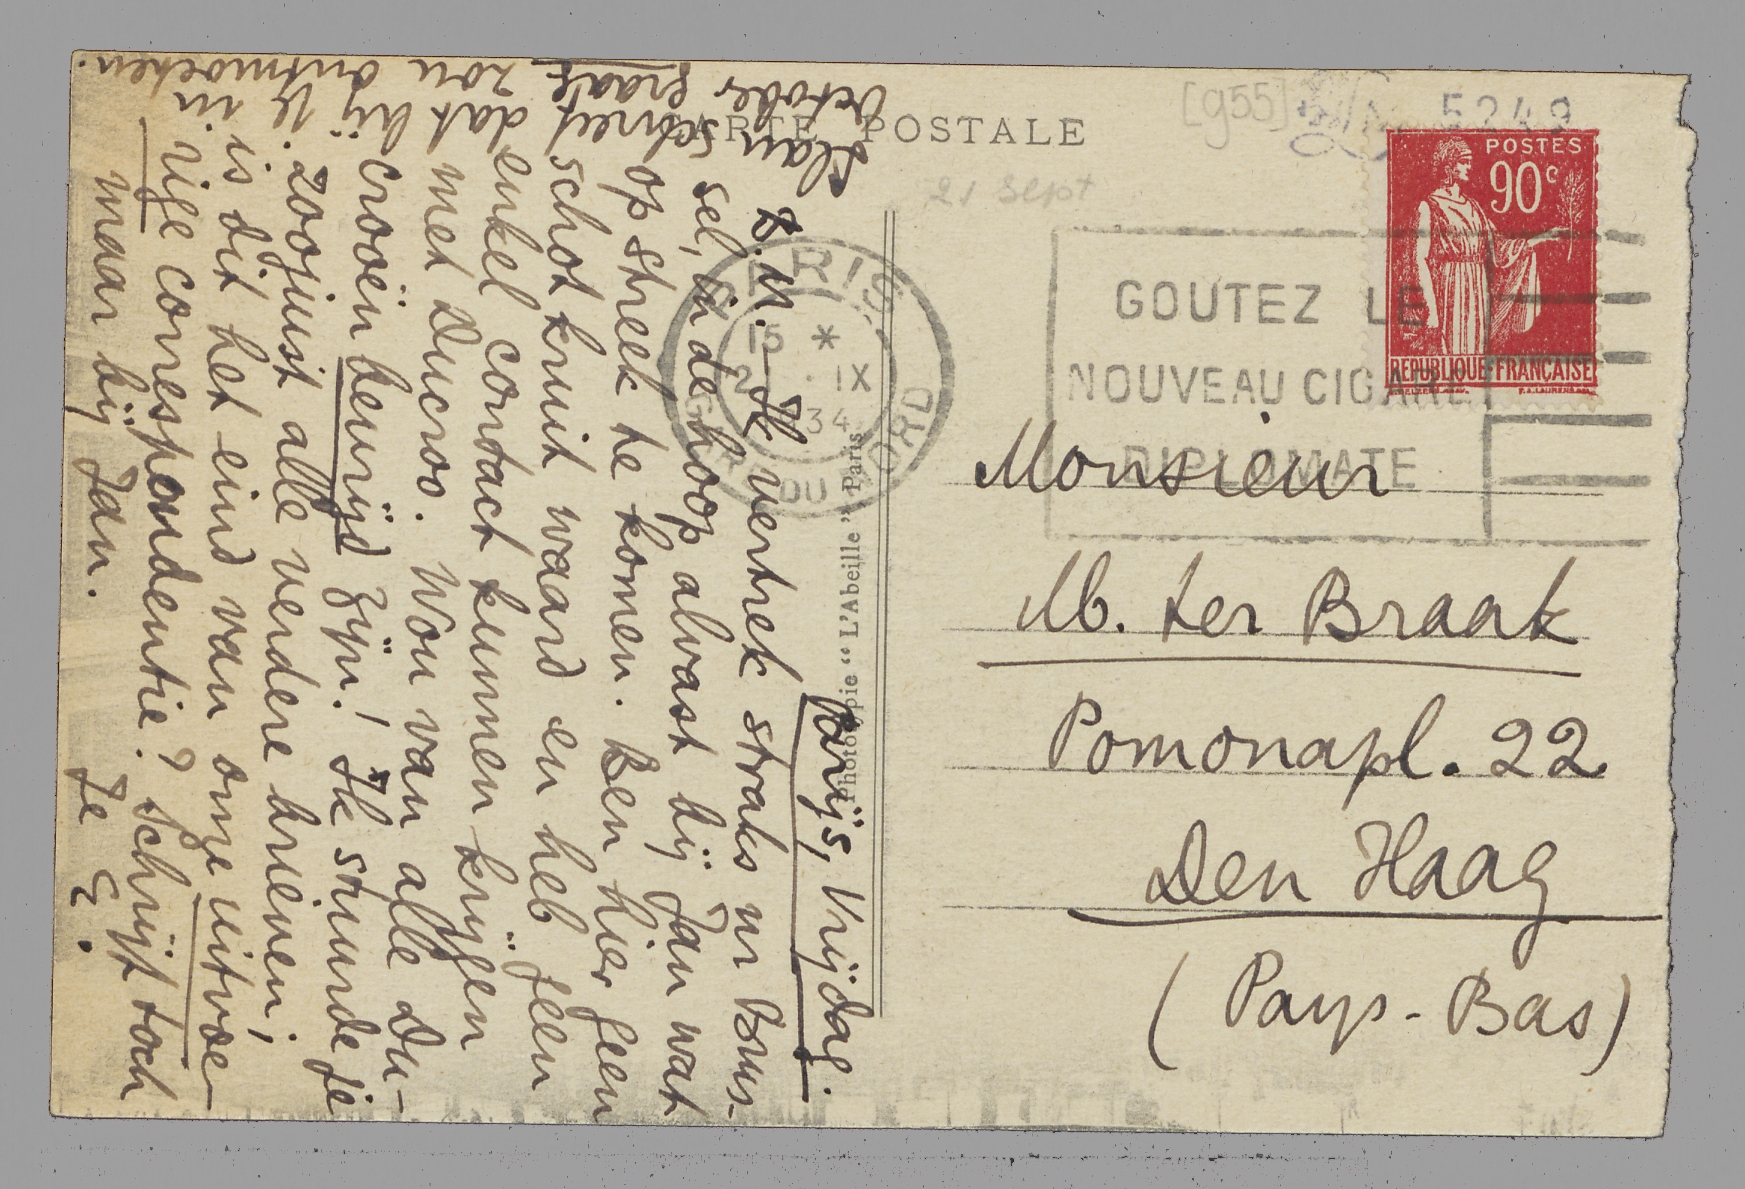 CARTE POSTALE
[955]
5249
21 Sept
POSTES
90c
REPUBLIQUE FRANÇAISE
GOUTEZ LE
NOUVEAU CIGARE
DIPLOMATE
PARIS
15 *
21 · IX
34
GARE DU NORD
Phototypie "L'Abeille" Paris
Monsieur
M. ter Braak
Pomonapl. 22
Den Haag
(Pays-Bas)
Parijs, Vrijdag.
B.M. – Ik vertrek straks nr Brus-
sel, in de hoop alvast bij Jan wat
op streek te komen. Ben hier geen
schot kruit waard en heb geen
enkel contact kunnen krijgen
met Ducroo. Wou van alle Du-
crooën bevrijd zijn! Ik stuurde je
zoojuist alle verdere brieven;
is dit het eind van onze uitvoe-
rige correspondentie? Schrijf toch
maar bij Jan.
Je E.
schreef dat hij je in
October graag zou ontmoeten.